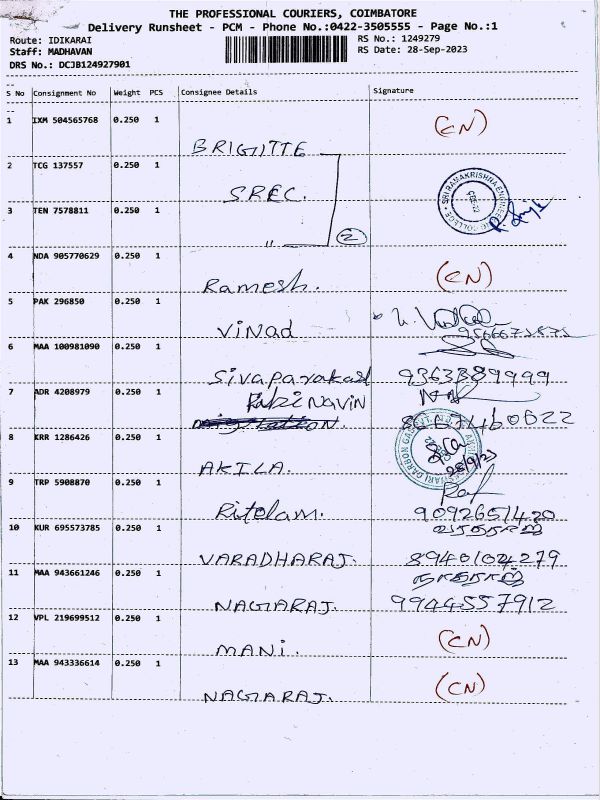 THE PROFESSIONAL COURIERS, COIMBATORE
Delivery Runsheet - PCM - Phone No.:0422-3505555 - Page No.:1
Route: IDIKARAI RS No.: 1249279
Staff: MADHAVAN RS Date: 28-Sep-2023
DRS No.: DCJB124927901
S No Consignment No Weight PCS Consignee Details Signature
1 IXM 504565768 0.250 1 BRIGITTE (CN)
2 TCG 137557 0.250 1 SREC.
3 TEN 7578811 0.250 1 〃 2
SRI RAMAKRISHNA ENGINEERING COLLEGE
4 NDA 905770629 0.250 1 Ramesh. (CN)
5 PAK 296850 0.250 1 Vinod
6 MAA 100981090 0.250 1 Sivaparakash 9363389999
7 ADR 4208979 0.250 1 NAVIN
8 KRR 1286426 0.250 1 AKILA. 28/9/23
9 TRP 5908870 0.250 1 9092651420
10 KUR 695573785 0.250 1 VARADHARAJ. வரதராஜ் 8940104279
11 MAA 943661246 0.250 1 NAGARAJ. நாகராஜ் 9944557912
12 VPL 219699512 0.250 1 MANI. (CN)
13 MAA 943336614 0.250 1 NAGARAJ. (CN)